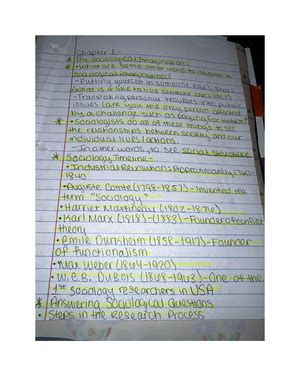 Chapter 1 -
* The Sociological Imagination:
• What are some other ways to develop a
Sociological Imagination?
- Putting yourself in someone else's shoes
(what is it like to live someone else's life)
- Translating personal troubles into public
issues (are you the only person affected
by a challenge such as paying for school?)
* • Sociologists do all of these things to see
the relationships between society and our
individual lives/actions.
- In other words, to see social structure
* Sociology Timeline -
• Industrial Revolution: Approximately 1760-
1840
• Auguste Comte (1798-1857) - Invented the
term "Sociology"
• Harriet Martineau (1802-1876)
• Karl Marx (1818-1883) - Founder of conflict
theory
• Emile Durkheim (1858-1917) - Founder
of functionalism
• Max Weber (1864-1920)
• W. E. B. DuBois (1868-1963) - One of the
1st sociology researchers in USA
* Answering Sociological Questions
• Steps in the Research Process